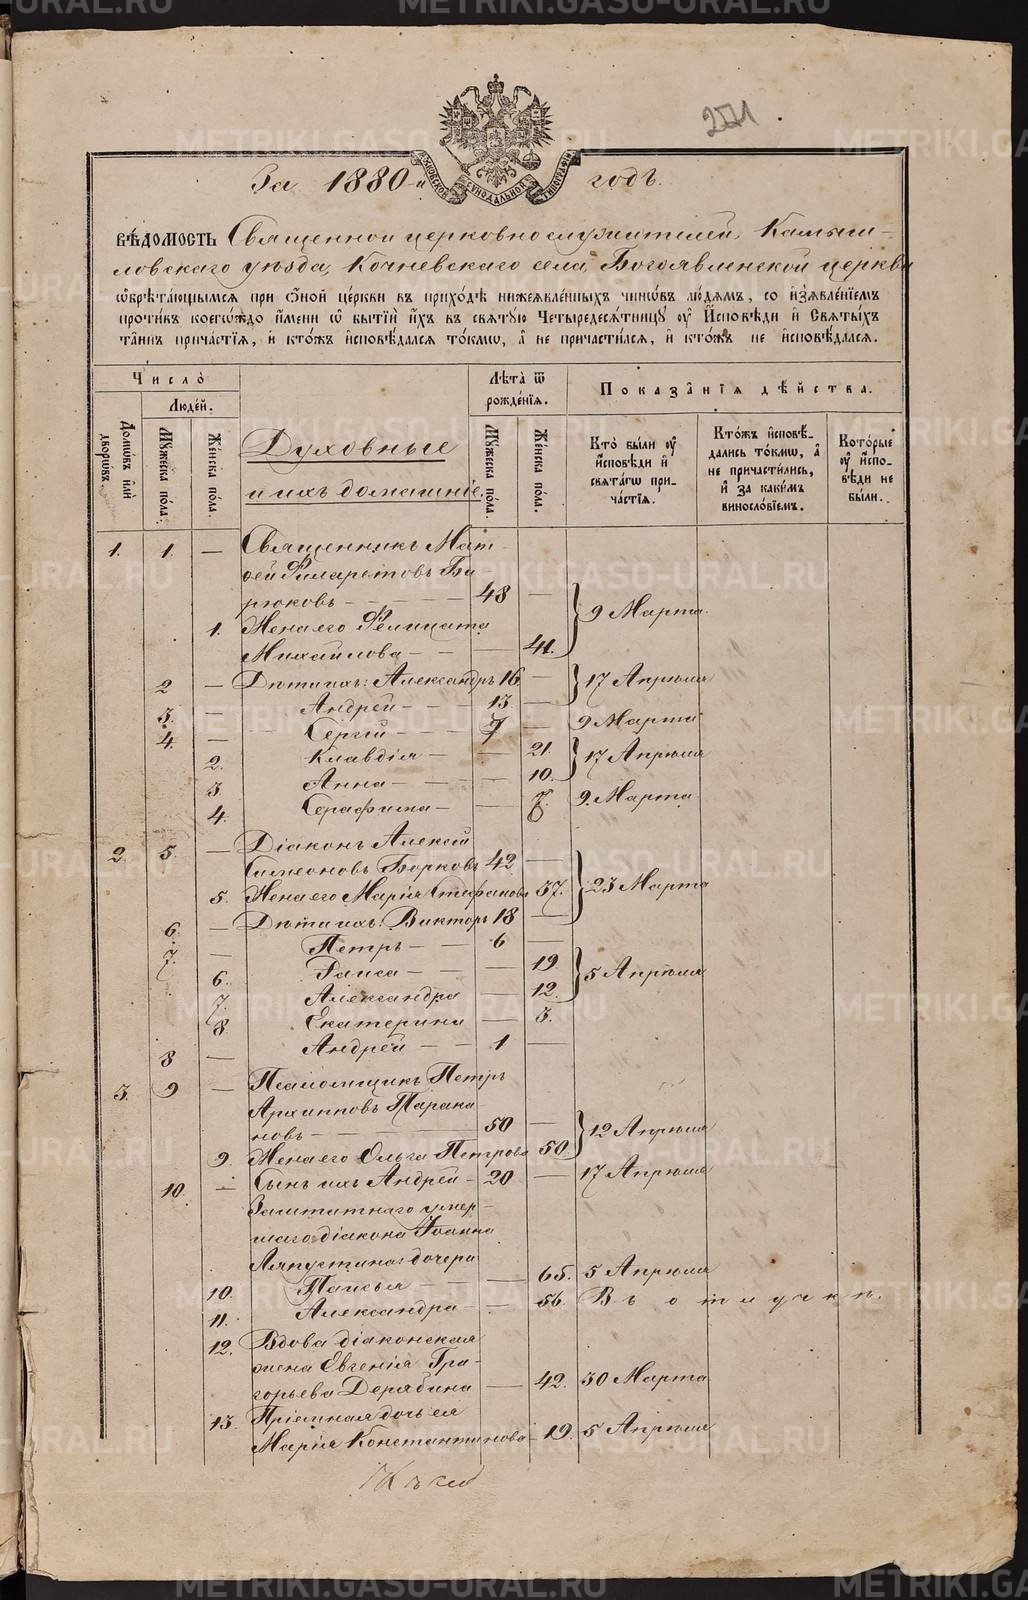 251
МОСКОВСКОЙ СѴНОДАЛЬНОЙ ТИПОГРАФІИ
За 1880-й годъ.
ВѢДОМОСТЬ Священно и церковнослужителей, Камыш-
ловскаго уѣзда, Кочневскаго села, Богоявленской церкви
ѡбрѣта́ющымся при ѻ́ной це́ркви въ прихо́дѣ нижеѧвле́нныхъ чинѡ́въ лю́дѧмъ, со и҆з̾ѧвле́нїемъ
проти́въ коегѡ́ждо и҆́мени ѡ҆ бытїѝ и҆́хъ въ свѧту́ю Четыредесѧ́тницу ᲂу҆ И҆сповѣди и҆ Свѧты́хъ
та́инъ прича́стїѧ, и҆ кто́жъ и҆сповѣ́дался то́кмѡ, а҆ не причасти́лся, и҆ кто́жъ не и҆сповѣ́дался.
Число̀
Люде́й.
Домѡ́въ и҆лѝ дворѡ́въ.
Мꙋ́жеска по́ла.
Же́нска по́ла.
Духовные
и ихъ домашніе
Лѣ́та ѿ рожде́нїѧ.
Мꙋ́жеска по́ла.
Же́нска по́ла.
Показа́нїѧ дѣ́йства.
Кто̀ бы́ли ᲂу҆ и҆́сповѣди и҆ свѧта́гѡ прича́стїѧ.
Кто́жъ и҆сповѣ́дались то́кмѡ, а҆ не причасти́лись, и҆ за каки́мъ винослоⷡ́вїемъ.
Кото́рые ᲂу҆ и҆́сповѣди не бы́ли.
1. 1. — Священникъ Мат-
ѳей Филаретовъ Би
рюковъ — 48 —
9 Марта
1. Жена его Фелицата
Михайлова — — 41.
2 — Дѣти ихъ: Александръ 16 — 17 Апрѣля
3. — Андрей — 13 —
4. — Сергій — 7 9 Марта
2. Клавдія — — 21. 17 Апрѣля
3. Анна — — 10.
4. Серафима — — 7. 9 Марта
2. 5. — Діаконъ Алексій
Симеоновъ Борковъ 42 —
5. Жена его Марія Стефанова 37. 23 Марта
6. — Дѣти ихъ: Викторъ 18 —
7. — Петръ — 6 —
6. Раиса — — 19 5 Апрѣля
7. Александра — 12.
8 Екатерина — 3.
8 — Андрей — — 1 —
3. 9 — Псаломщикъ Петръ
Архиповъ Тарака
новъ — 50 — 12 Апрѣля
9. Жена его Ольга Петрова 50.
10. — Сынъ ихъ Андрей — 20 — 17 Апрѣля
Заштатнаго умер-
шаго діакона Іоанна
Ляпустина дочери
10. Таисья — — 65. 5 Апрѣля
11. Александра — — 56. Въ отлучкѣ.
12. Вдова діаконская
жена Евгенія Гри-
горьева Дерябина — 42. 30 Марта
13. Пріемная дочь ея
Марія Константинова — 19. 5 Апрѣля
METRIKI.GASO-URAL.RU